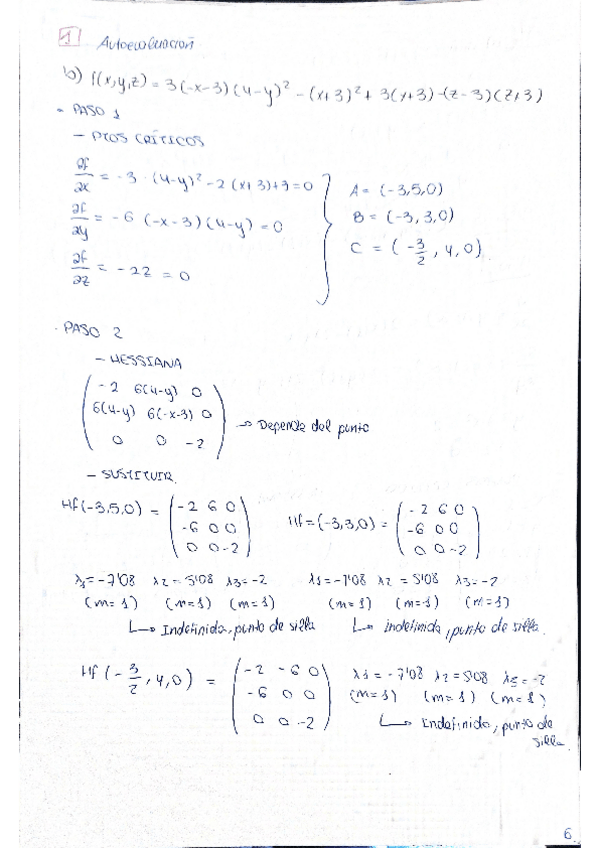 1 Autoevaluación
b) f(x,y,z) = 3(-x-3)(4-y)² - (x+3)² + 3(x+3) - (z-3)(z+3)
- PASO 1
- PTOS CRÍTICOS
∂f/∂x = -3·(4-y)² - 2(x+3)+3 = 0
∂f/∂y = -6(-x-3)(4-y) = 0
∂f/∂z = -2z = 0
A = (-3,5,0)
B = (-3,3,0)
C = (-3/2, 4, 0)
- PASO 2
- HESSIANA
-2 6(4-y) 0
6(4-y) 6(-x-3) 0 → Depende del punto
0 0 -2
- SUSTITUIR
Hf(-3,5,0) = (-2 6 0
-6 0 0
0 0 -2)
Hf=(-3,3,0) = (-2 6 0
-6 0 0
0 0 -2)
λ1=-7'08 λ2=5'08 λ3=-2
(m=1) (m=1) (m=1)
↳ Indefinida, punto de silla
λ1=-7'08 λ2=5'08 λ3=-2
(m=1) (m=1) (m=1)
↳ indefinida, punto de silla.
Hf(-3/2, 4, 0) = (-2 -6 0
-6 0 0
0 0 -2)
λ1=-7'08 λ2=5'08 λ3=-2
(m=1) (m=1) (m=1)
↳ Indefinida, punto de
silla
6